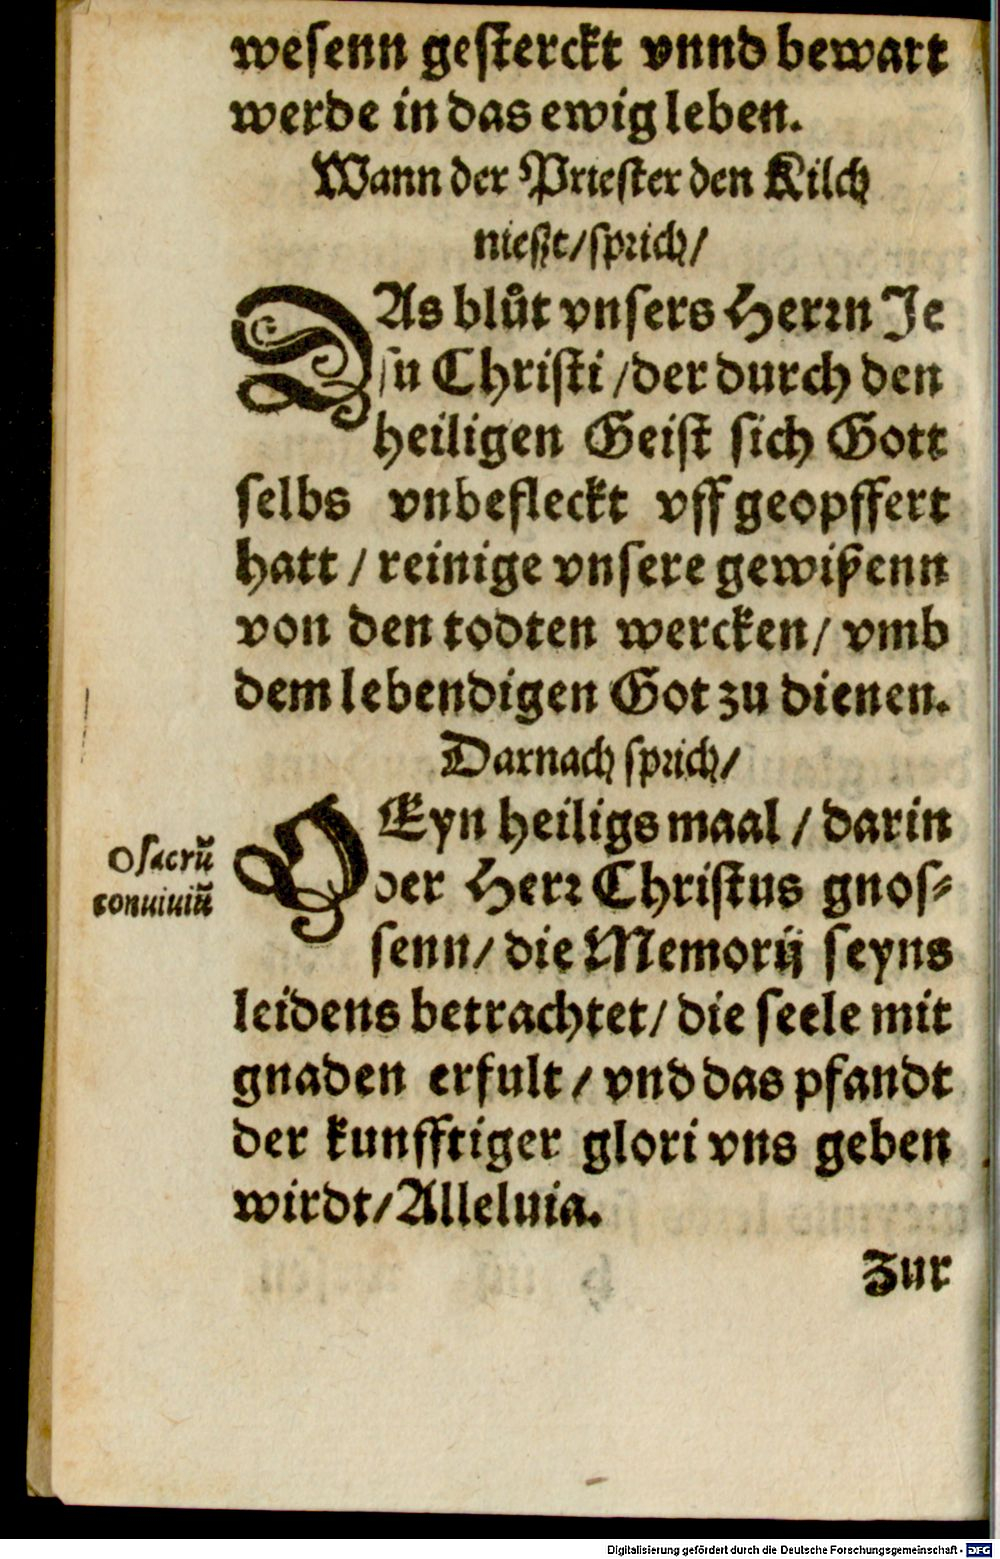 wesenn gesterckt vnnd bewart
werde in das ewig leben.
Wann der Priester den Kilch
nießt/sprich/
DAs blůt vnsers Herrn Je
su Christi /der durch den
heiligen Geist sich Gott
selbs vnbefleckt vff geopffert
hatt / reinige vnsere gewißenn
von den todten wercken/ vmb
dem lebendigen Got zu dienen.
Darnach sprich/
O sacrū
conuiuiū
O Eyn heiligs maal / darin
der Herr Christus gnos-
senn/ die Memorij seyns
leidens betrachtet/ die seele mit
gnaden erfult / vnd das pfandt
der kunfftiger glori vns geben
wirdt/Alleluia.
Zur
Digitalisierung gefördert durch die Deutsche Forschungsgemeinschaft - DFG